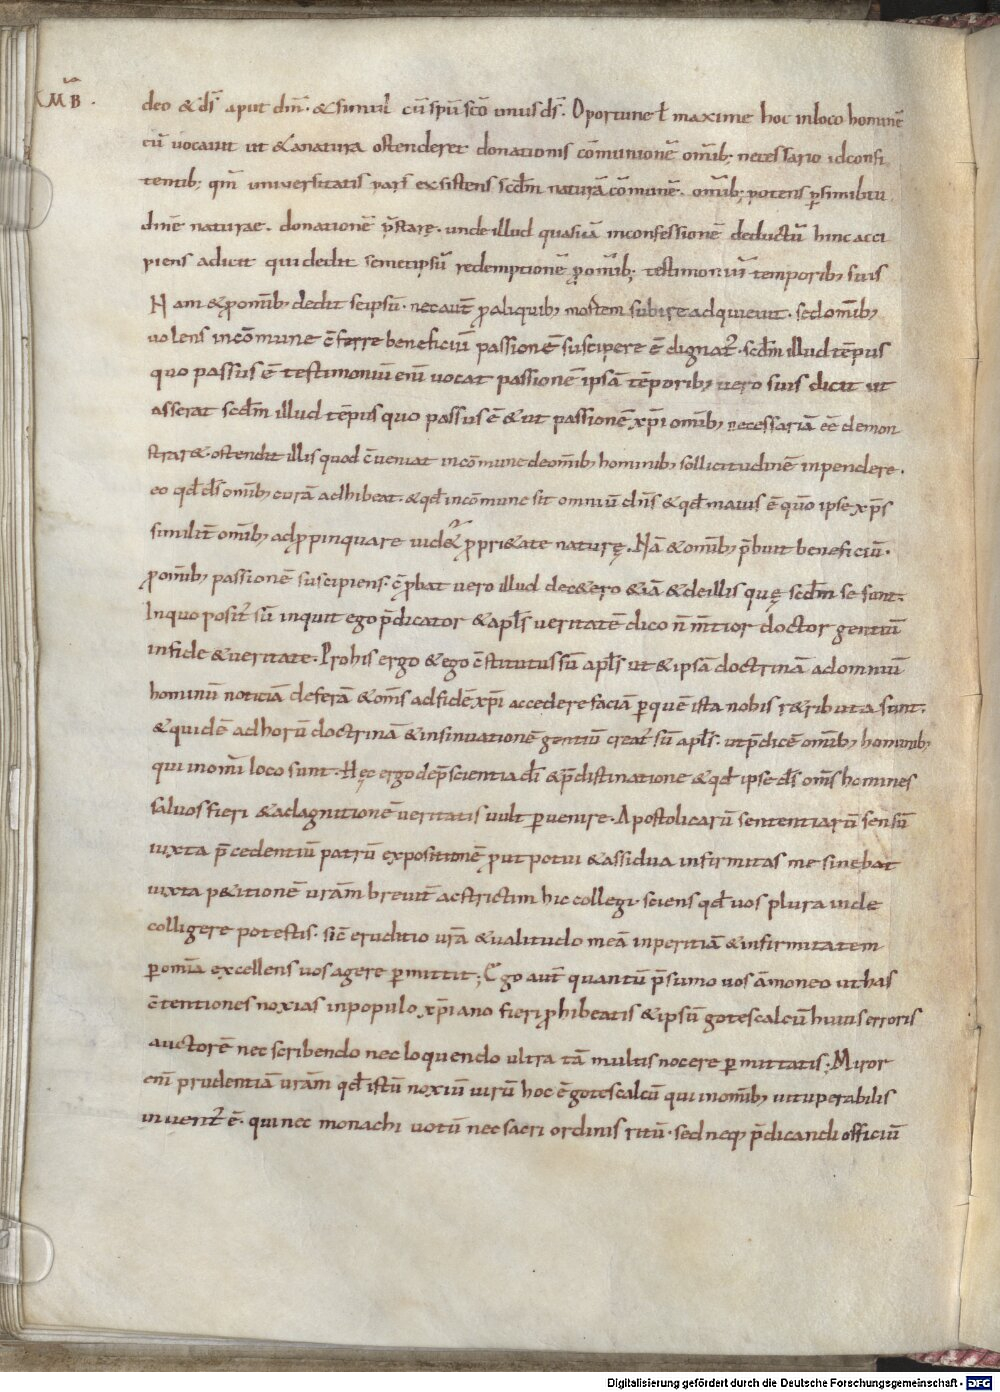 MB .
deo & ds̄ aput dm̄ · & simul cū spū scō unus ds̄ · Oportune ł maxime hoc in loco hominē
cū vocavit ut & a natura ostenderet donationis cōmunionē omib; necessario id confi
tentib; qm̄ universitatis pars exsistens scdm̄ naturā cōmunē · omib; potens p similitu
dinē naturae · donationē p̄stare · unde illud quasi iā in confessionē deductū hinc acci
piens adicit qui dedit semetipsū redemptionē p omib; testimoniū temporib; suis
Nam & p omib; dedit seipsū · nec aut̄ p aliquib; mortem subire adquievit · sed omib;
volens in cōmune c̄ferre beneficiū passionē suscipere ē dignat᷒ · scdm̄ illud tēpus
quo passus ē testimoniū eni vocat passionē ipsā tēporib; vero suis dicit ut
asserat scdm̄ illud tēpus quo passus ē & ut passionē xp̄i omib; necessariā eē demon
strar& · ostendit illis quod c̄veniat in cōmune de omib; hominib; sollicitudinē inpendere ·
eo qđ ds̄ omib; curā adhibeat · & qđ in cōmune sit omniū dn̄s & qđ maius ē quō ipse xp̄s
similit̄ omib; adpropinquare videt᷒ propri&ate naturę · Nā & omib; p̄buit beneficiū ·
p omib; passionē suscipiens · c̄pbat vero illud dec&ero &iā & de illis quę scdm̄ se sunt ·
In quo posit᷒ sū inquit ego p̄dicator & apls̄ veritatē dico n̄ m̄tior doctor gentiū
in fide & veritate · Pro his ergo & ego c̄stitutus sū apls̄ ut & ipsā doctrinā ad omniū
hominū noticiā deferā & oms̄ ad fidē xp̄i accedere faciā p quē ista nobis r&ributa sunt ·
& quidē ad horū doctrinā & insinuationē gentiū creat᷒ sū apls̄ · ut p̄dicē omib; hominib;
qui in omi loco sunt · Hęc ergo de p̄scientia dī & p̄distinatione & qđ ipse ds̄ oms̄ homines
salvos fieri & ad agnitionē veritatis vult pvenire · Apostolicarū sententiarū sensū
iuxta p̄cedentiū patrū expositionē prout potui & assidua infirmitas me sinebat
iuxta p&itionē vrām brevit̄ ac strictim hic collegi · sciens qđ vos plura inde
colligere potestis · sic̄ eruditio vrā & valitudo meā inperitiā & infirmitatem
p omīa excellens vos agere pmittit ; Ego aut̄ quantū p̄sumo vos āmoneo ut has
c̄tentiones noxias in populo xp̄iano fieri phibeatis & ipsū gotescalcū huius erroris
auctorē nec scribendo nec loquendo ultra tā multis nocere pmittatis ; Miror
eni prudentiā vrām qđ istū noxiū virū hoc ē gotescalcū qui in omib; vituperabilis
invent᷒ ē · qui nec monachi votū nec sacri ordinis ritū · sed neq; p̄dicandi officiū
Digitalisierung gefördert durch die Deutsche Forschungsgemeinschaft - DFG